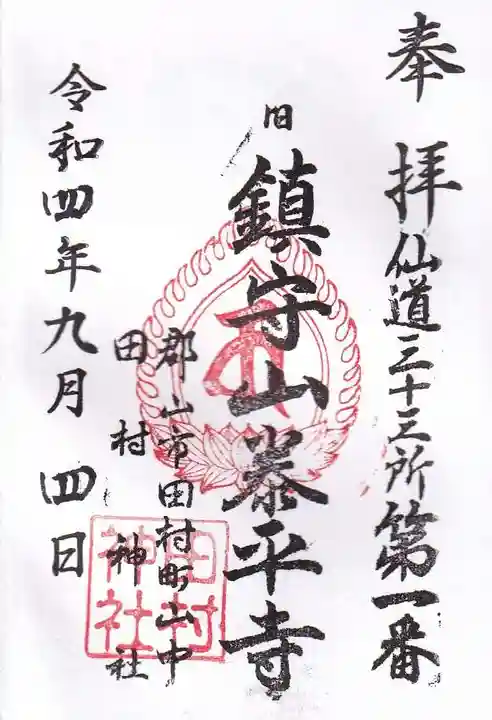 奉拝 仙道三十三所第一番
旧 鎮守山泰平寺
郡山市田村町山中
田村神社
田村神社
令和四年九月四日